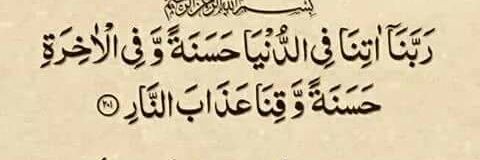 بِسْمِ اللهِ الرَّحْمٰنِ الرَّحِيْمِ
رَبَّنَآ اٰتِنَا فِى الدُّنْيَا حَسَنَةً وَّ فِى الْاٰخِرَةِ
حَسَنَةً وَّ قِنَا عَذَابَ النَّارِ ﴿۲۰۱﴾